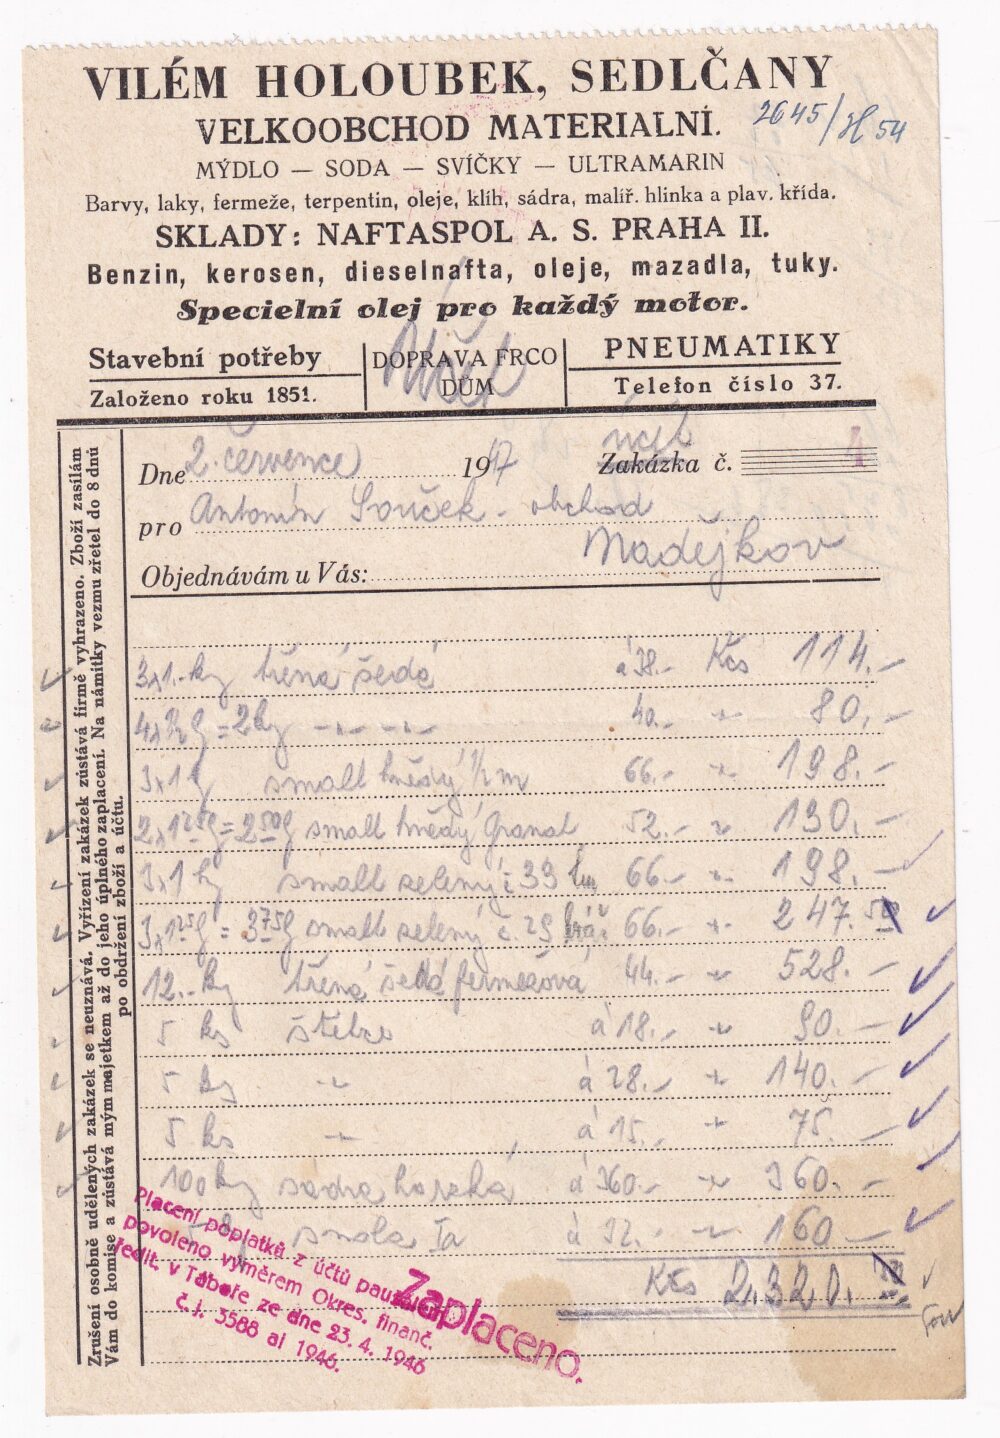 VILÉM HOLOUBEK, SEDLČANY
VELKOOBCHOD MATERIALNÍ.
2645/H 54
MÝDLO — SODA — SVÍČKY — ULTRAMARIN
Barvy, laky, fermeže, terpentin, oleje, klih, sádra, malíř. hlinka a plav. křída.
SKLADY: NAFTASPOL A. S. PRAHA II.
Benzin, kerosen, dieselnafta, oleje, mazadla, tuky.
Specielní olej pro každý motor.
Stavební potřeby
Založeno roku 1851.
DOPRAVA FRCO
DŮM
Účet
PNEUMATIKY
Telefon číslo 37.
účet
Dne 2. července 1947 Zakázka č. 4
pro Antonín Souček - obchod
Nadějkov
Objednávám u Vás:
3x1.- kg třená šedá á 38.- Kčs 114.-
= 2 kg -"- -"- 40.- " 80.-
3x1 kg smalt hnědý 1/2 m 66.- " 198.-
2x1 25 = 2 50 smalt hnědý Granat 52.- " 130.-
3x1 kg smalt zelený č 33 66.- " 198.-
3x1 25 = 3 75 smalt zelený č. 29 66.- " 247.50
12.- kg třená šedá fermežová 44.- " 528.-
5 ks štětce á 18.- " 90.-
5 ks -"- á 28.- " 140.-
5 ks -"- á 15.- " 75.-
100 kg sádra harzká á 360.- " 360.-
smola Ia á 32.- " 160.-
Kčs 2.320.
Zrušení osobně udělených zakázek se neuznává. Vyřízení zakázek zůstává firmě vyhrazeno. Zboží zasílám
Vám do komise a zůstává mým majetkem až do jeho úplného zaplacení. Na námitky vezmu zřetel do 8 dnů
po obdržení zboží a účtu.
Placení poplatků z účtů paušálem
povoleno výměrem Okres. finanč.
ředit. v Táboře ze dne 23. 4. 1946
č. j. 5588 ai 1946.
Zaplaceno.